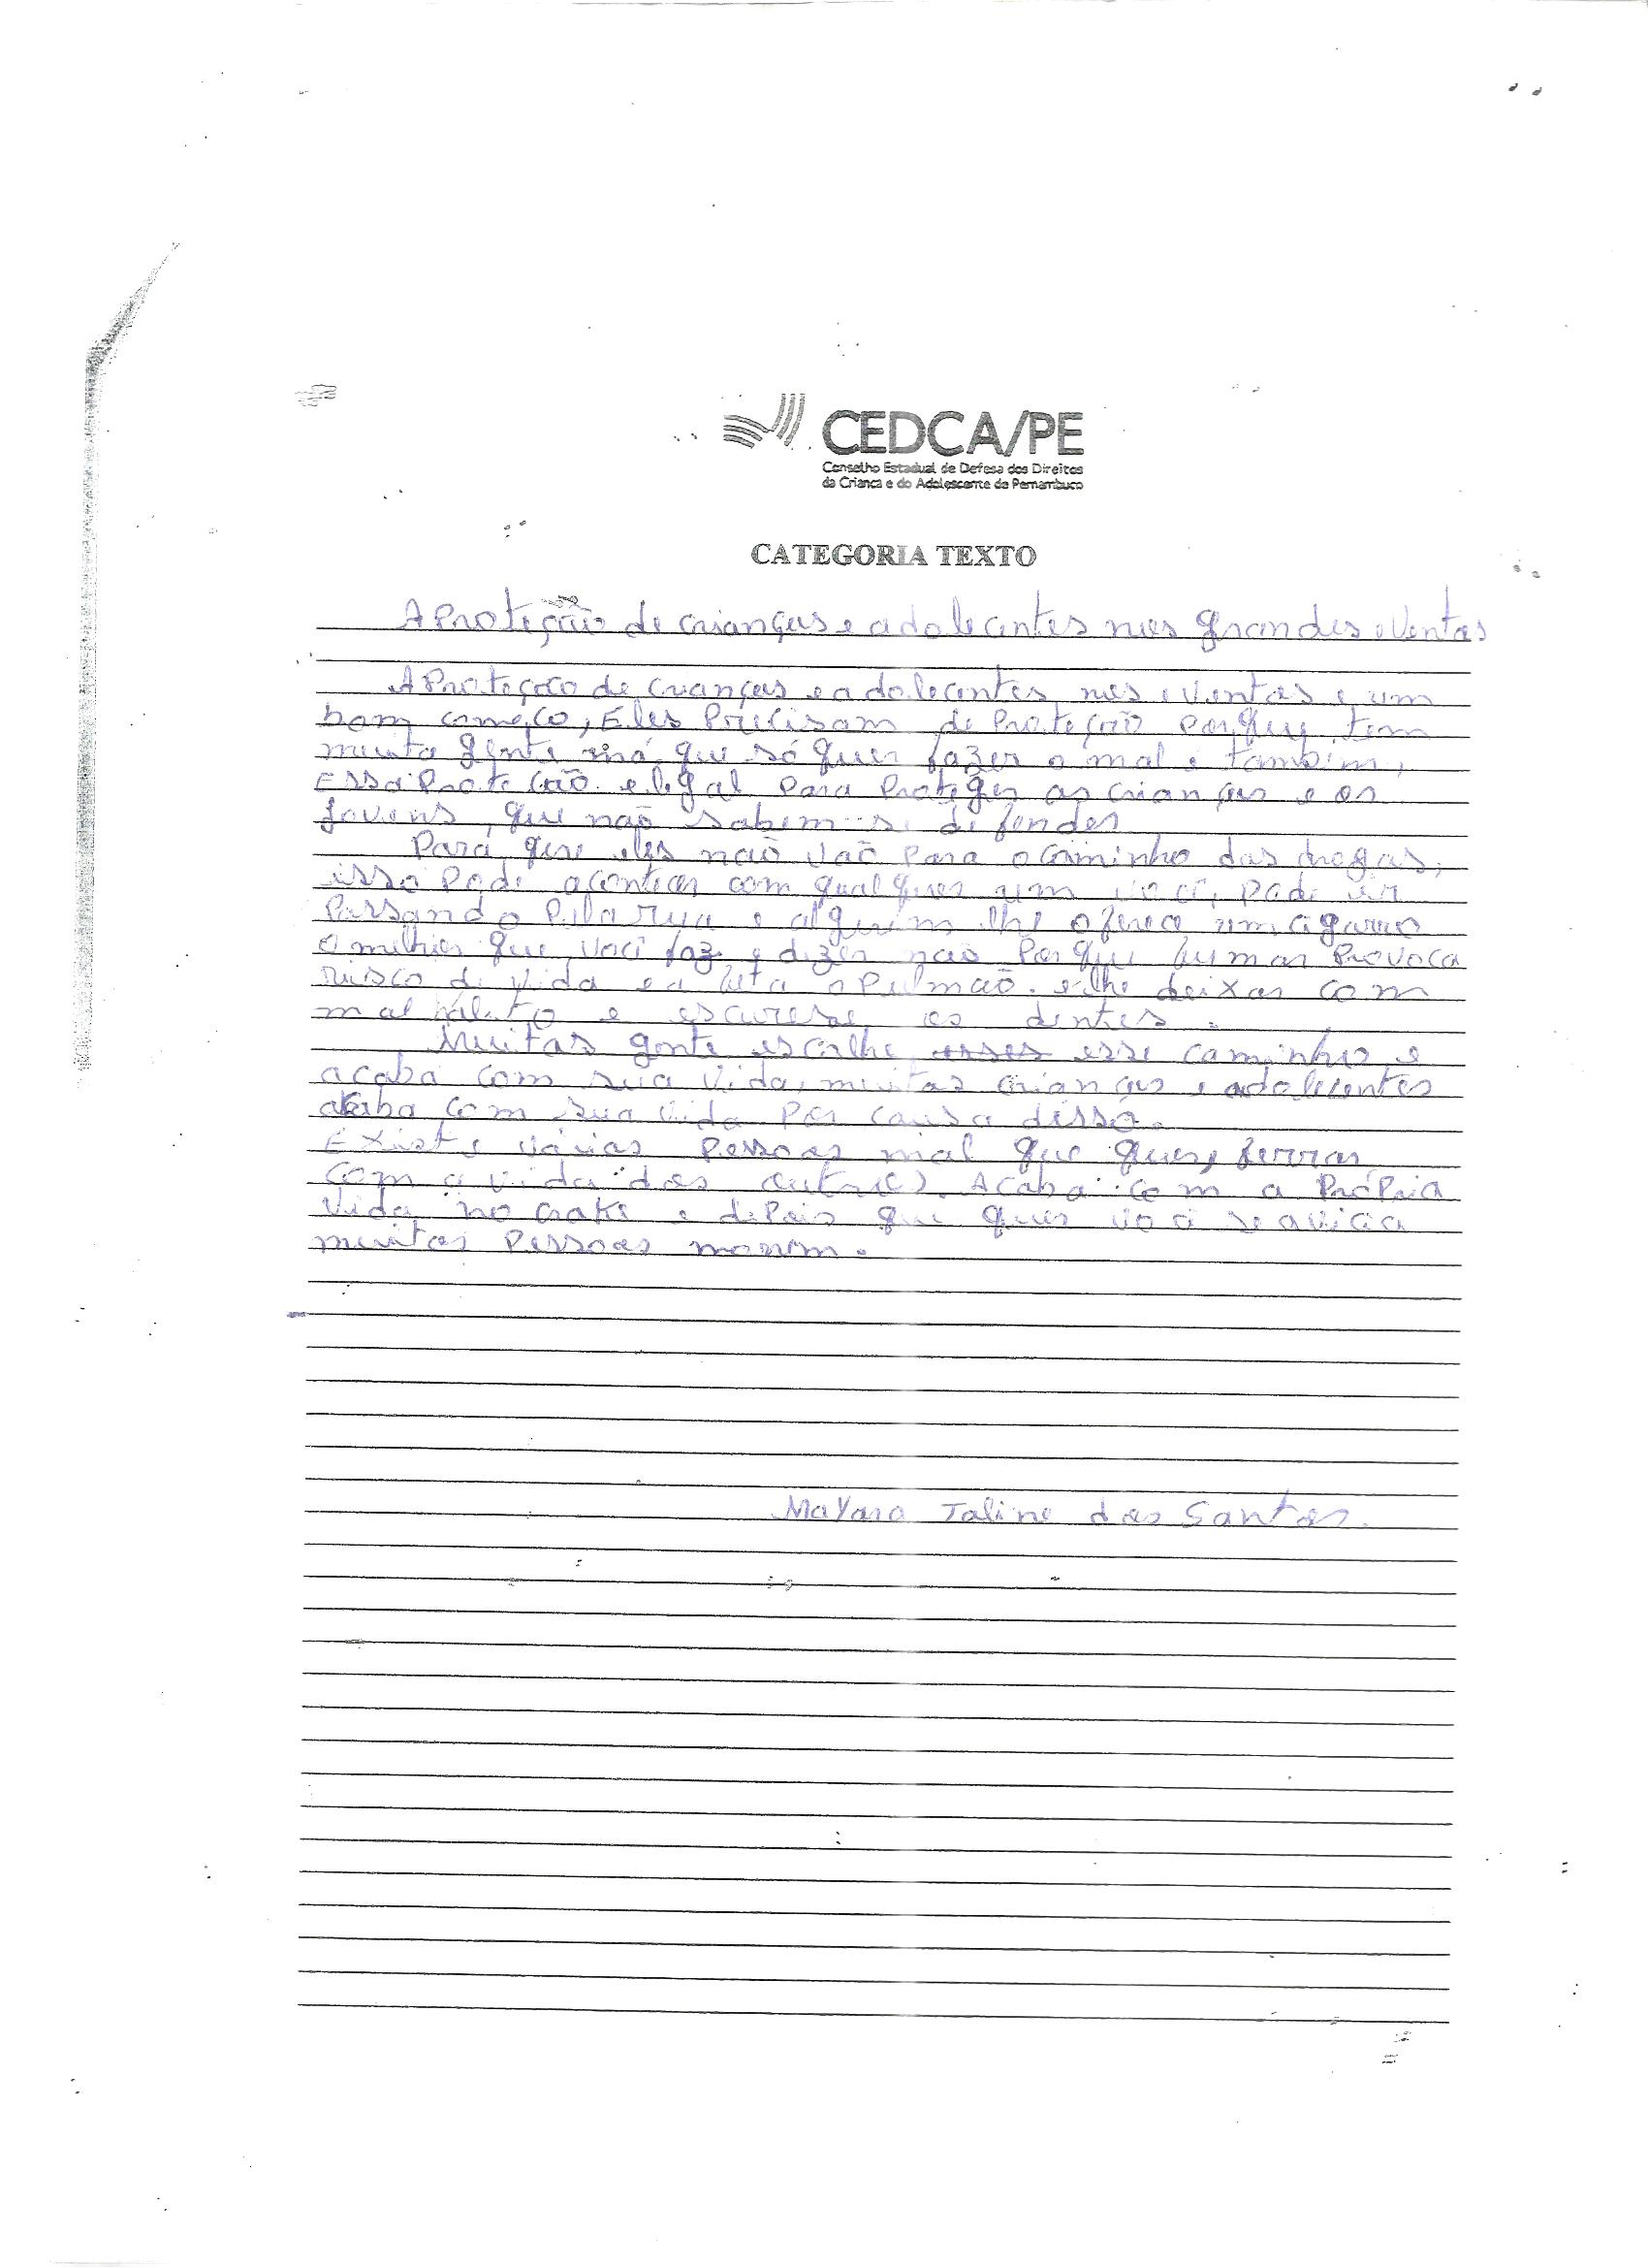 CEDCA/PE
Conselho Estadual de Defesa dos Direitos
da Criança e do Adolescente de Pernambuco
CATEGORIA TEXTO
A Proteção de crianças e adolecentes nos grandes eventos
A Proteção de crianças e adolecentes nos eventos e um
bom começo, Eles Precisam de Proteção Porque tem
muita gente má que só quer fazer o mal e também,
Essa Proteção e legal Para Proteger as crianças e os
Jovens, que não sabem se defender
Para que eles não vão Para o caminho das drogas,
isso Pode acontecer com qualquer um você, Pode ir
Passando Pela rua e alguém lhe oferece um cigarro
o melhor que você faz e dizer não Porque fumar Provoca
risco de vida e a o Pulmão. e lhe deixar com
mal halito e escurese os dentes.
Muitas gente escolhe esses esse caminho e
acaba com sua vida, muitas crianças e adolecentes
acaba com sua vida Por causa disso.
Existe várias Pessoas mal que quer, ferrar
com a vida dos outros. Acaba com a Própria
Vida no crake e depois que quer você se avicia
muitas Pessoas morrem.
Mayara Taline dos Santos.